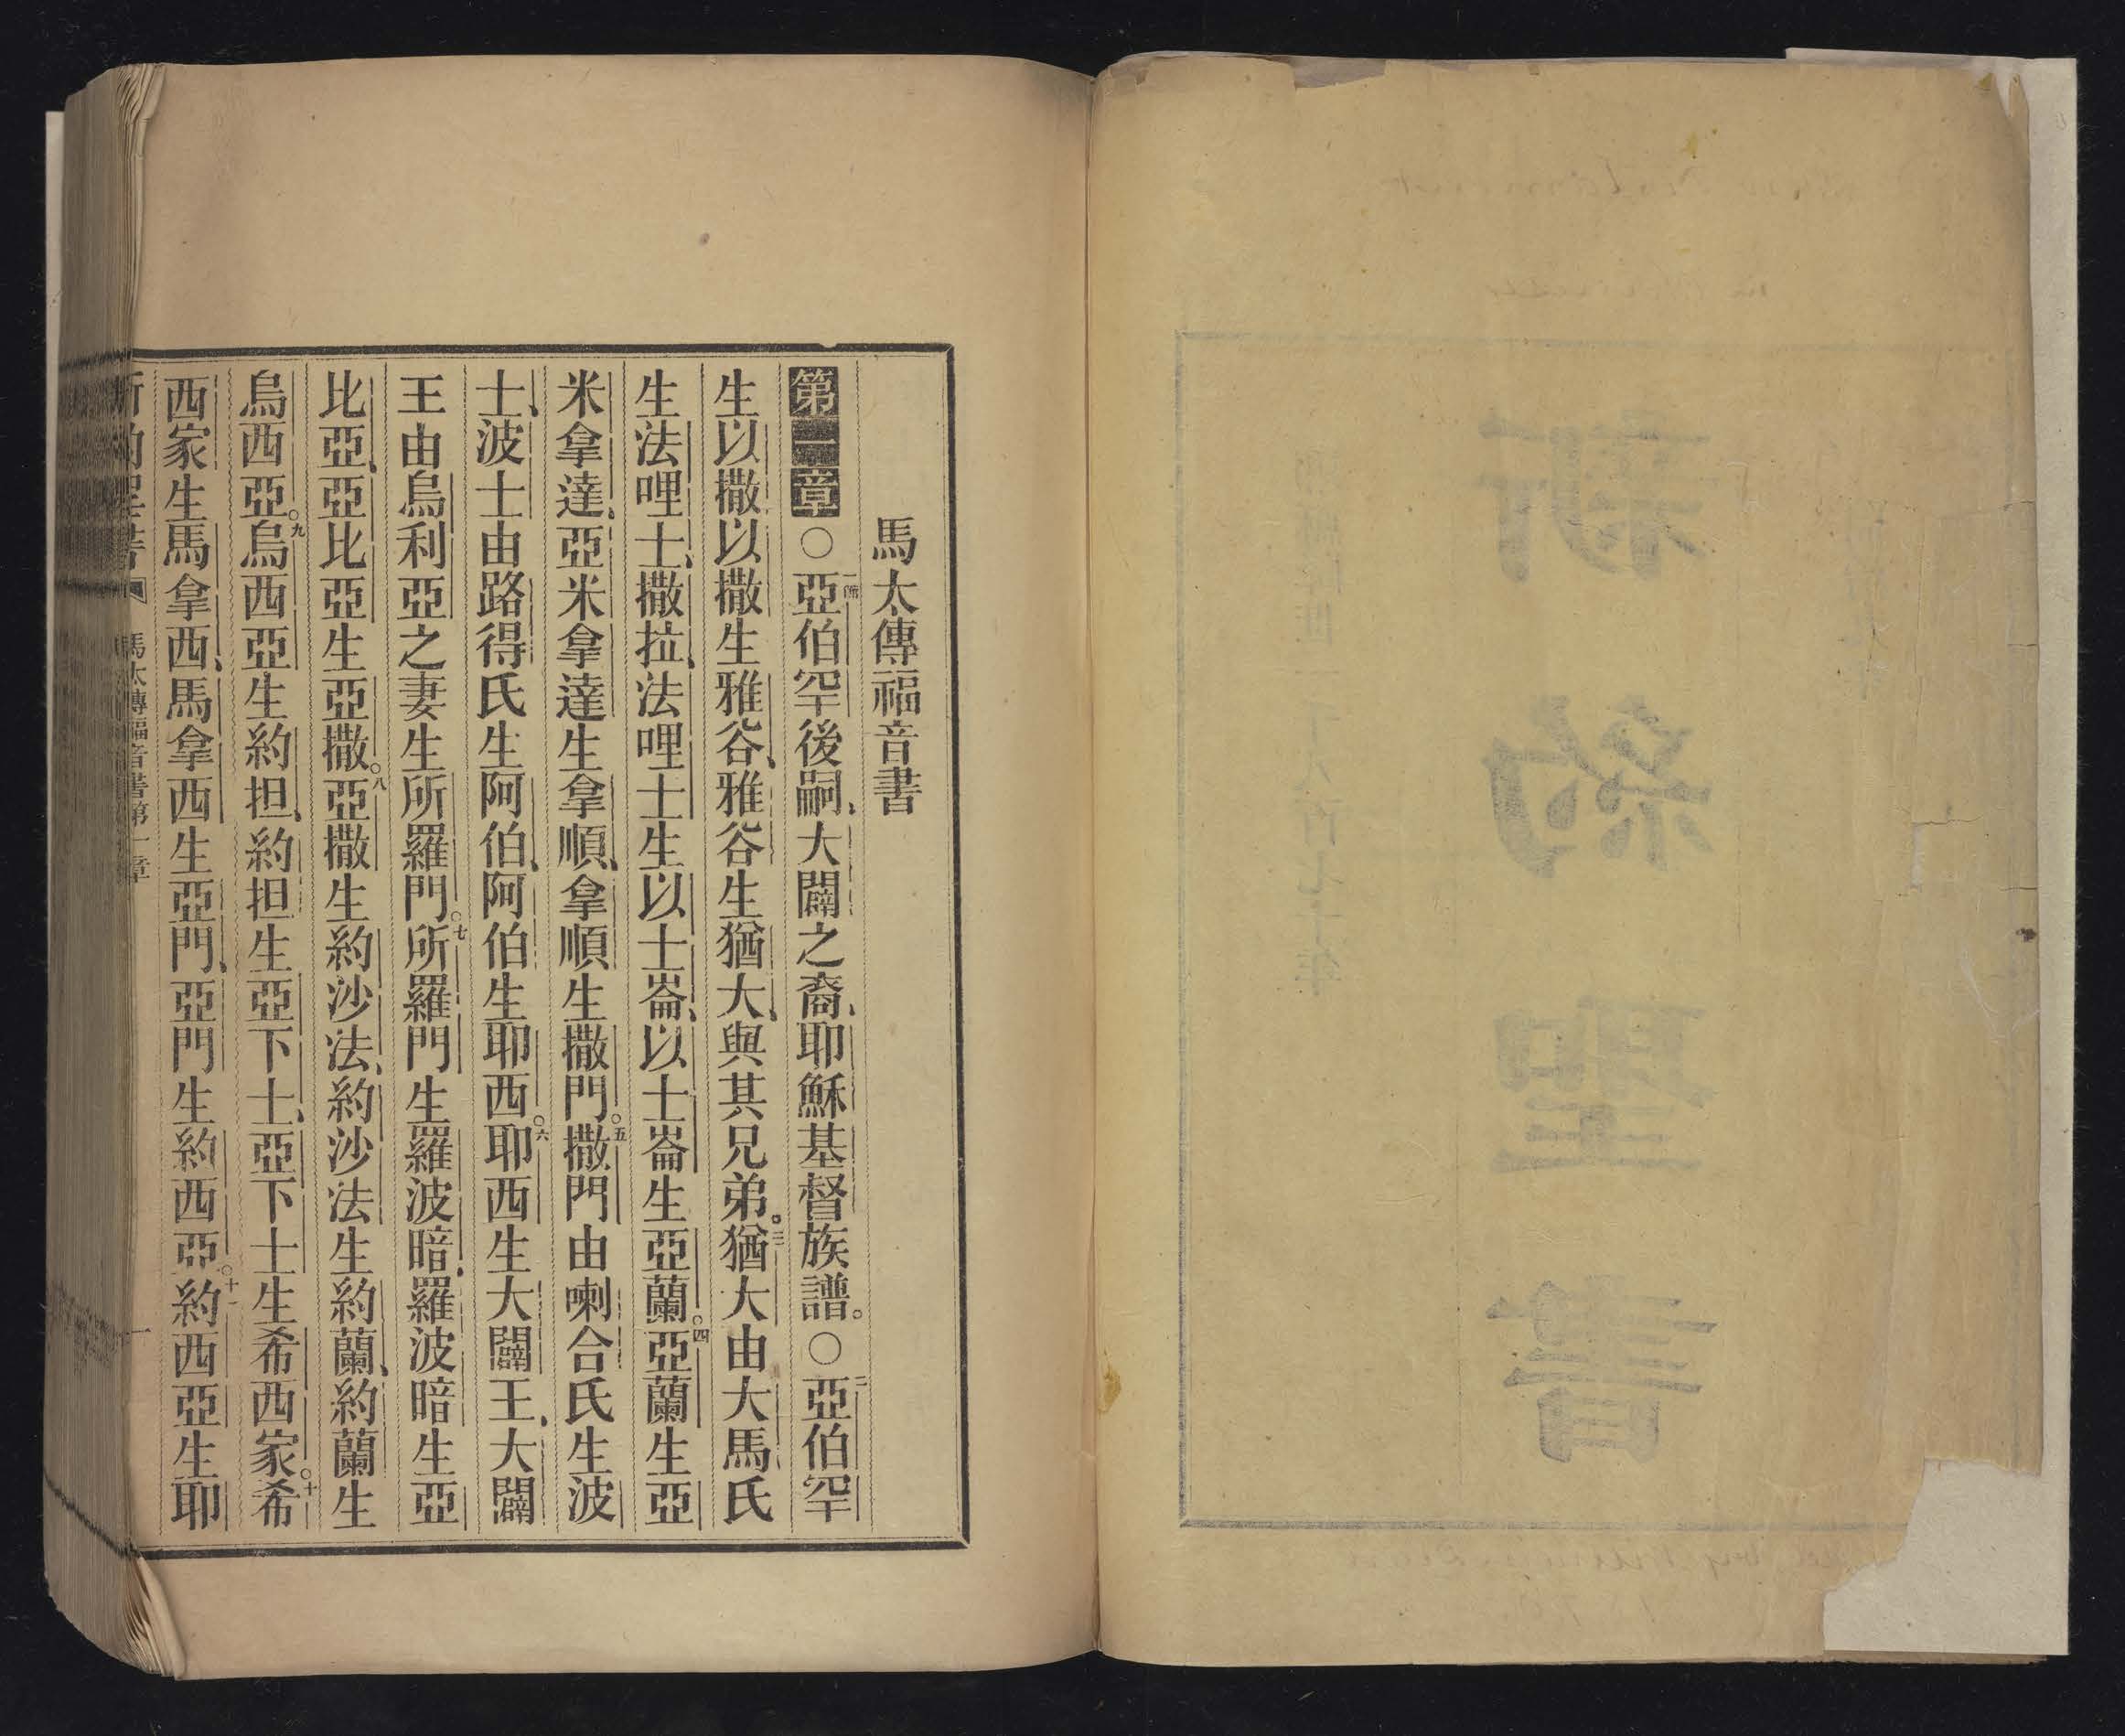 新約聖書
馬太傳福音書
第一章○一節亞伯罕後嗣、大闢之裔、耶穌基督族譜。○二亞伯罕
生以撒以撒生雅谷、雅谷生猶大、與其兄弟。三猶大由大馬氏
生法哩士、撒拉、法哩士生以士崙、以士崙生亞蘭。四亞蘭生亞
米拿達、亞米拿達生拿順、拿順生撒門。五撒門由喇合氏生波
士、波士由路得氏生阿伯、阿伯生耶西。六耶西生大闢王、大闢
王由烏利亞之妻生所羅門。七所羅門生羅波暗、羅波暗生亞
比亞、亞比亞生亞撒。八亞撒生約沙法、約沙法生約蘭、約蘭生
烏西亞。九烏西亞生約担、約担生亞下士、亞下士生希西家。十希
西家生馬拿西、馬拿西生亞門、亞門生約西亞。十一約西亞生耶
新約聖書 馬太傳福音書第一章 一